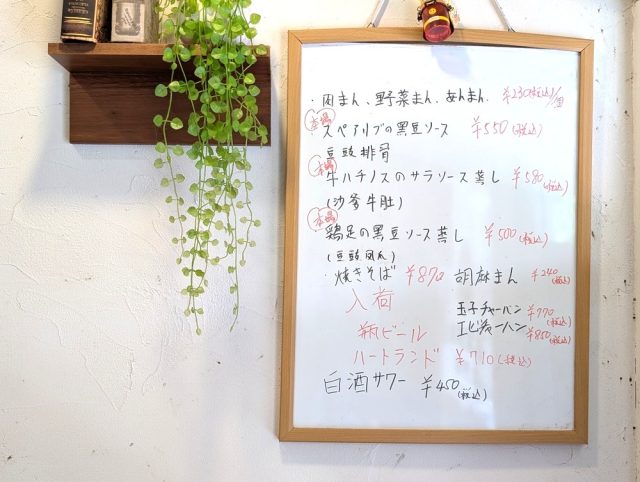 ・肉まん、野菜まん、あんまん、 ¥230(税込)/個
本場
スペアリブの黒豆ソース ¥550(税込)
豆頭排骨
本場
牛ハチノスのサラソース蒸し ¥580(税込)
(沙爹牛肚)
本場
鶏足の黒豆ソース蒸し ¥500(税込)
(豆鼓凤爪)
・焼きそば ¥870 胡麻まん ¥240(税込)
入荷 玉子チャーハン ¥770(税込)
瓶ビール エビチャーハン ¥850(税込)
ハートランド ¥710(税込)
白酒サワー ¥450(税込)